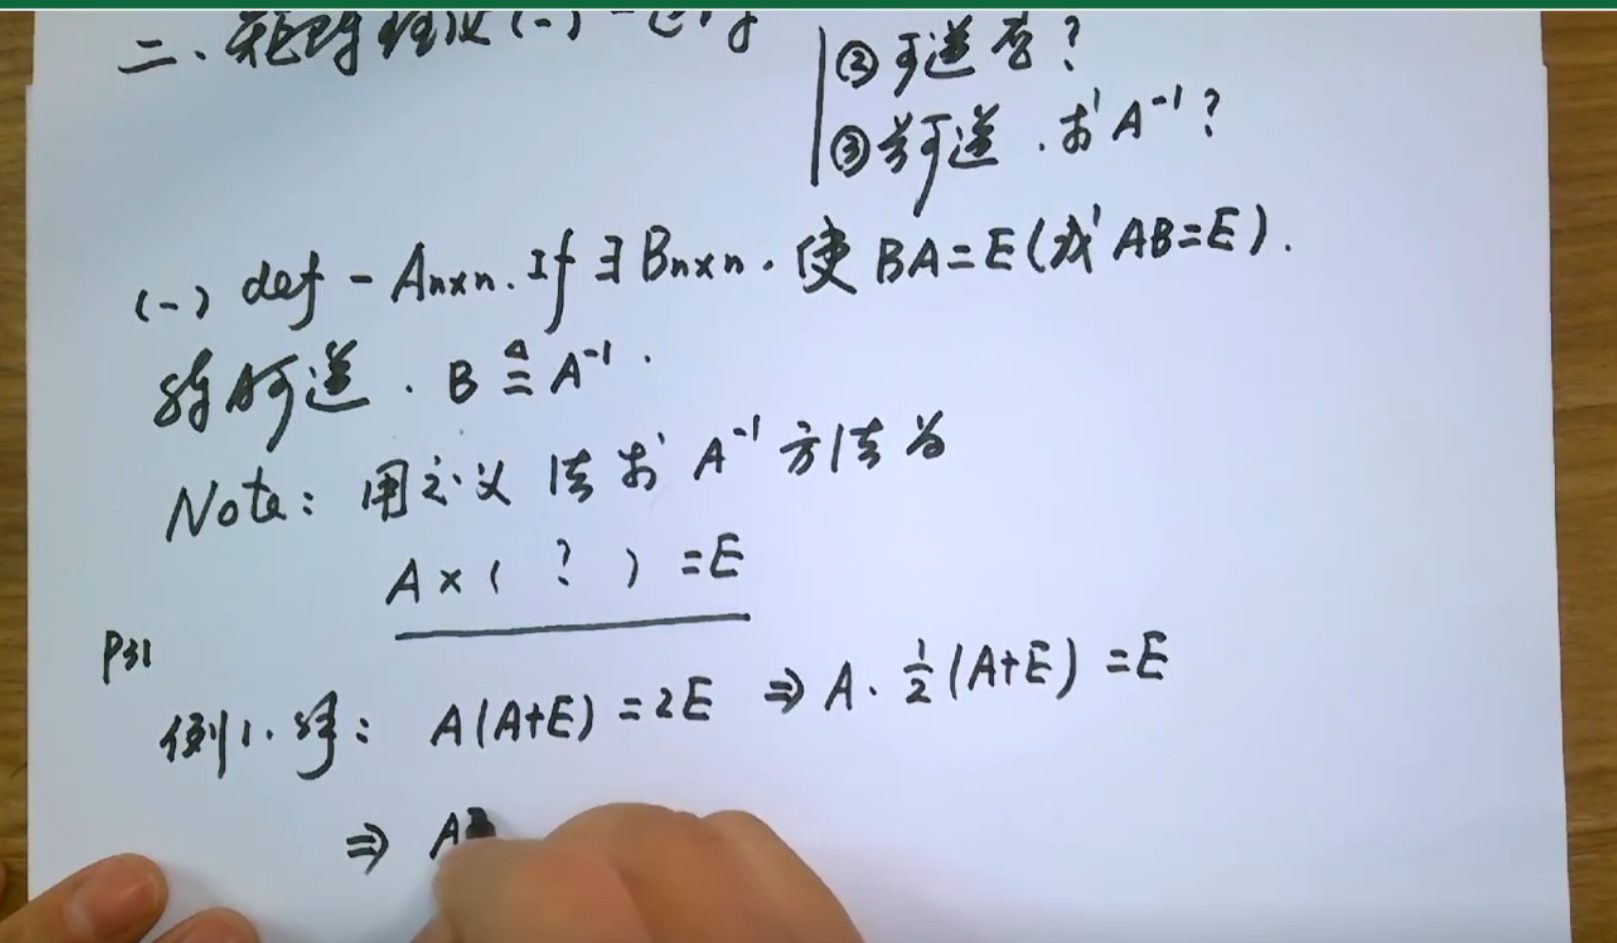 二、矩阵理论(一)
②可逆否?
③若可逆.求A⁻¹?
(一) def - Aₙₓₙ. If ∃ Bₙₓₙ. 使 BA=E(或 AB=E).
称A可逆. B ≜ A⁻¹.
Note: 用定义法求 A⁻¹ 方法为
A × ( ? ) = E
P31
例1. 解: A(A+E) = 2E ⇒ A. 1/2 (A+E) = E
⇒ A